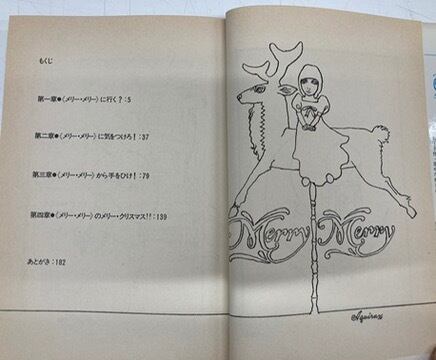 もくじ
第一章●〈メリー・メリー〉に行く?:5
第二章●〈メリー・メリー〉に気をつけろ!:37
第三章●〈メリー・メリー〉から手をひけ!:79
第四章●〈メリー・メリー〉のメリー・クリスマス!!:139
あとがき:182
Merry Merry